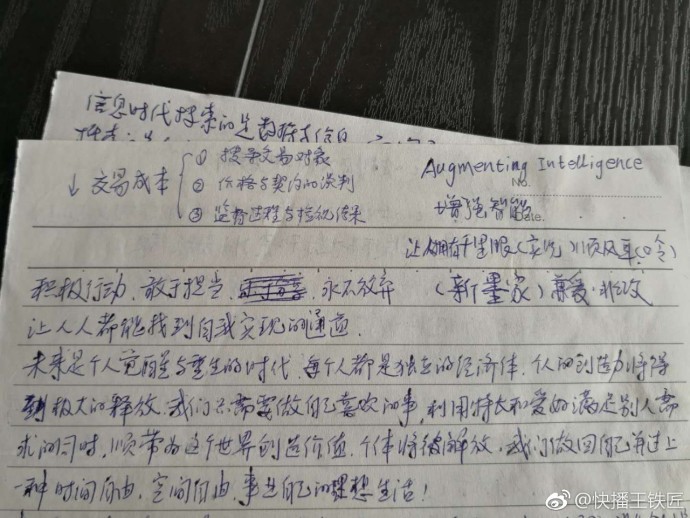 信息时代探索的是
↓交易成本
① 搜寻交易对象
② 价格与契约的谈判
③ 监督过程与检视结果
Augmenting Intelligence
No.
增强智能
Date.
让人拥有千里眼(实况)顺风耳(口令)
积极行动、敢于担当、永不放弃 (新墨家) 兼爱·非攻
让人人都能找到自我实现的通道.
未来是个人觉醒与重生的时代、每个人都是独立的经济体、个人的创造力将得
到极大的释放、我们只需要做自己喜欢的事,利用特长和爱好满足别人需
求的同时、顺带为这个世界创造价值、个体将被解放、我们做回自己并过上
一种时间自由、空间自由、事是自己的理想生活!
@快播王铁匠